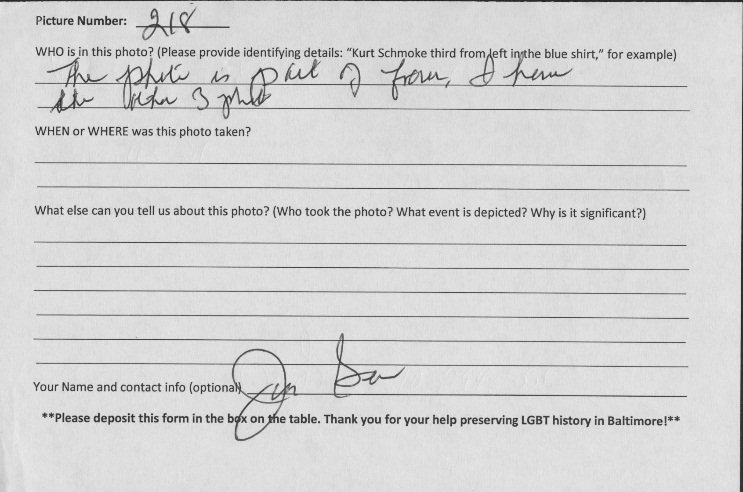 Picture Number: 218
WHO is in this photo? (Please provide identifying details: “Kurt Schmoke third from left in the blue shirt,” for example)
The photo is part of four, I have
the other 3 photos
WHEN or WHERE was this photo taken?
What else can you tell us about this photo? (Who took the photo? What event is depicted? Why is it significant?)
Your Name and contact info (optional)
**Please deposit this form in the box on the table. Thank you for your help preserving LGBT history in Baltimore!**